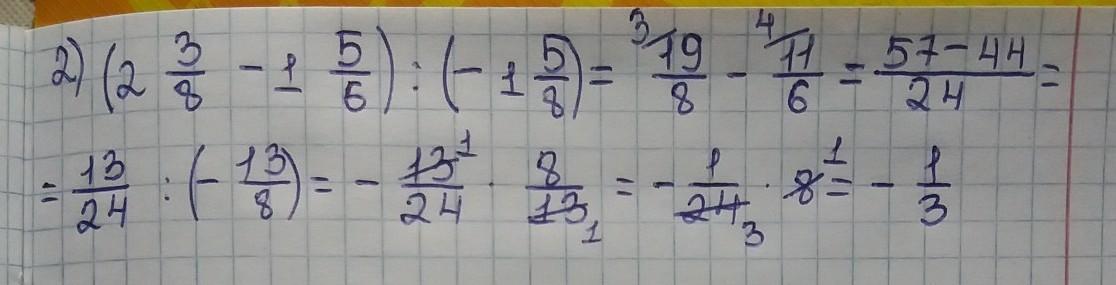 2) (2 3/8 - 1 5/6) : (- 1 5/8) = ³/19/8 - ⁴/11/6 = (57 - 44)/24 =
= 13/24 : (- 13/8) = - 13¹/24 · 8/13₁ = - 1/24₃ · 8¹ = - 1/3